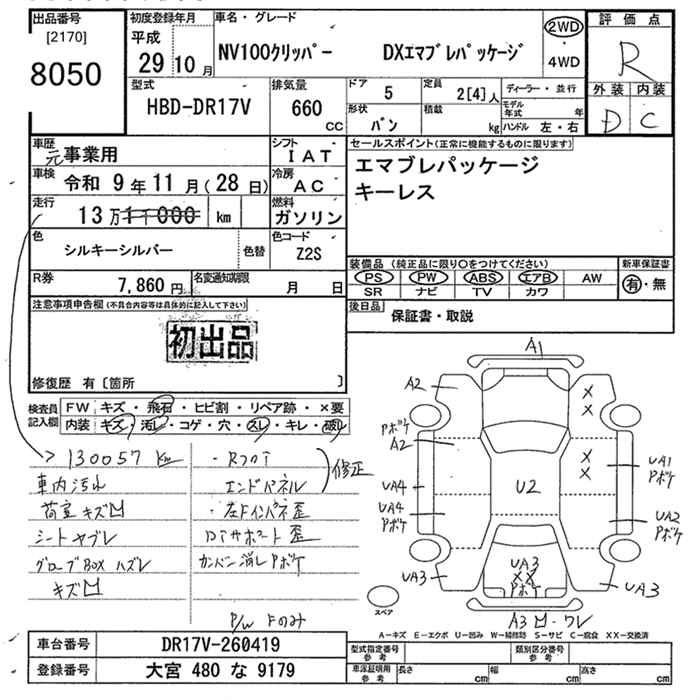 出品番号
[2170]
8050
初度登録年月
平成
29 10 月
車名・グレード
NV100クリッパー DXエマブレパッケージ
2WD
・
4WD
評価点
R
外装 内装
D C
型式
HBD-DR17V
排気量
660
CC
ドア 5
定員 2[4]人
形状 バン
積載 kg
ディーラー・並行
モデル年式 年
ハンドル 左・右
車歴
元 事業用
車検 令和 9年 11月(28日)
走行 13万 11000 km
色 シルキーシルバー 色替
シフト
IAT
冷房
AC
燃料
ガソリン
色コード
Z2S
R券 7,860円
名変通知期限 月 日
セールスポイント(正常に機能するものに限ります)
エマブレパッケージ
キーレス
装備品(純正品に限り○をつけてください)
PS PW ABS エアB AW
SR ナビ TV カワ
新車保証書
有・無
後日品 保証書・取説
注意事項申告欄(不具合内容等は具体的に記入して下さい)
初出品
修復歴 有〔箇所 〕
検査員記入欄
FW キズ・飛石・ヒビ割・リペア跡・×要
内装 キズ・汚レ・コゲ・穴・スレ・キレ・破レ
130057 km
車内汚れ
荷室キズ凹
シートヤブレ
グローブBOXハズレ
キズ凹
・Rフロア
エンドパネル
修正
・左Fインパネ歪
ロアサポート歪
カンバン消しPボケ
P/W Fのみ
A1
A2
Pボケ
A2
UA4
UA4
Pボケ
UA3
U2
UA1
Pボケ
UA2
Pボケ
UA3
UA3
XX
Pボケ
A3凹・ワレ
スペア
A-キズ E-エクボ U-凹み W-補修跡 S-サビ C-腐食 XX-交換済
車台番号 DR17V-260419
登録番号 大宮 480 な 9179
型式指定番号 参考
類別区分番号 参考
車庫証明用 参考 長さ cm 幅 cm 高さ cm